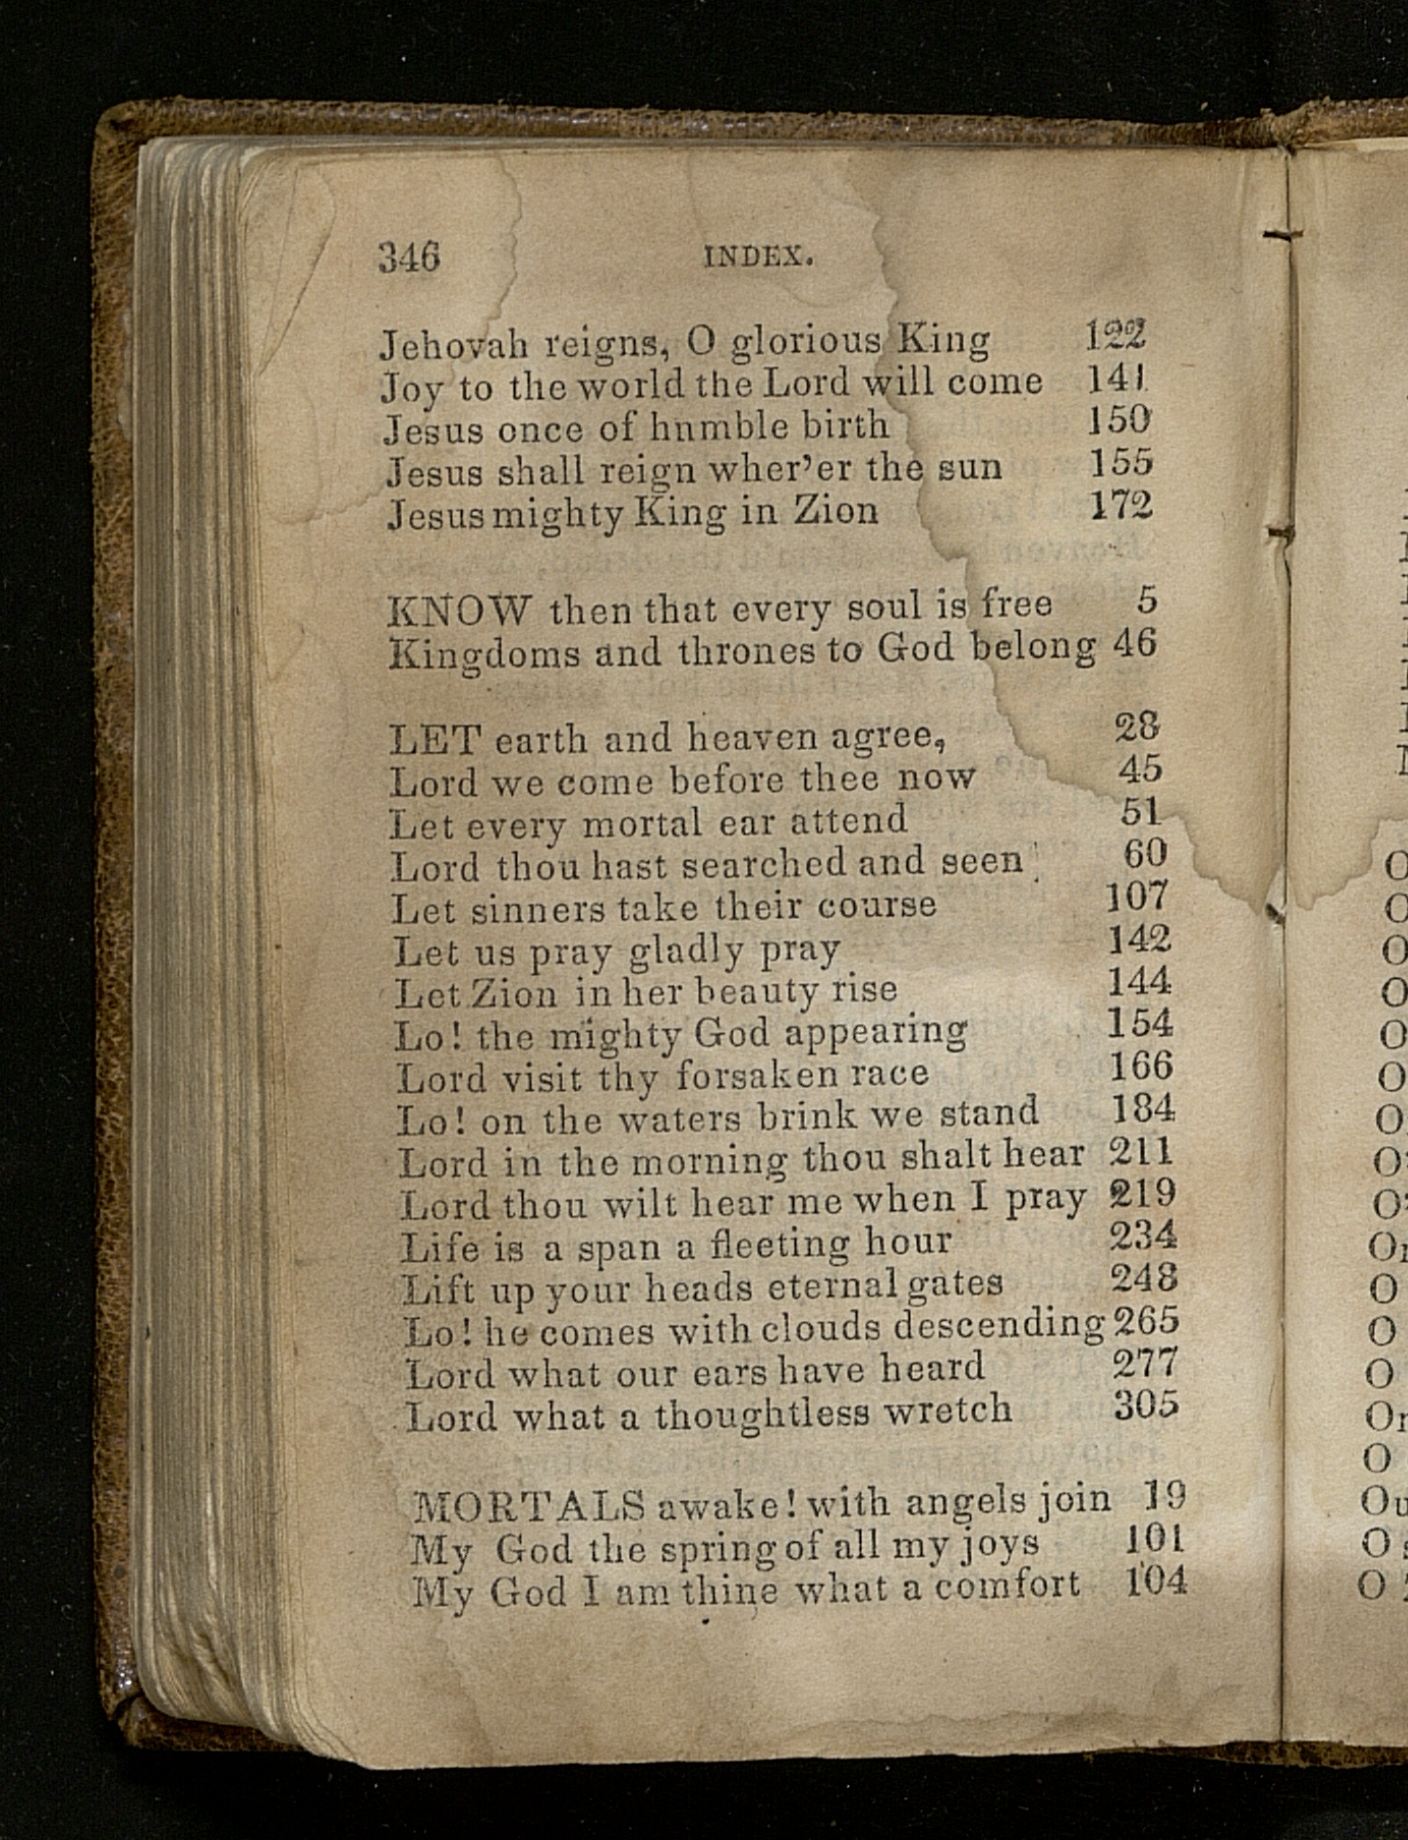 346 INDEX.
Jehovah reigns, O glorious King 122
Joy to the world the Lord will come 141
Jesus once of humble birth 150
Jesus shall reign wher'er the sun 155
Jesus mighty King in Zion 172
KNOW then that every soul is free 5
Kingdoms and thrones to God belong 46
LET earth and heaven agree, 28
Lord we come before thee now 45
Let every mortal ear attend 51
Lord thou hast searched and seen 60
Let sinners take their course 107
Let us pray gladly pray 142
Let Zion in her beauty rise 144
Lo! the mighty God appearing 154
Lord visit thy forsaken race 166
Lo! on the waters brink we stand 184
Lord in the morning thou shalt hear 211
Lord thou wilt hear me when I pray 219
Life is a span a fleeting hour 234
Lift up your heads eternal gates 248
Lo! he comes with clouds descending 265
Lord what our ears have heard 277
Lord what a thoughtless wretch 305
MORTALS awake! with angels join 19
My God the spring of all my joys 101
My God I am thine what a comfort 104